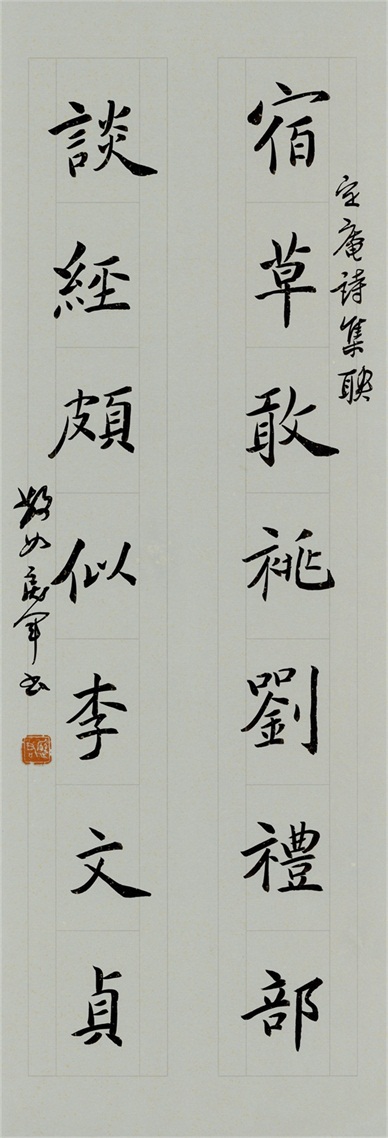 定庵詩集聯
宿草敢祧劉禮部
談經頗似李文貞